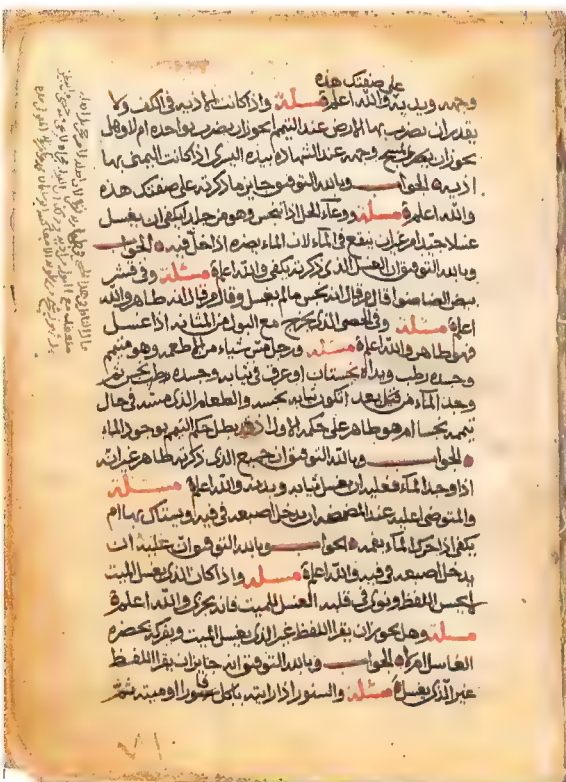 على صفتك هذه
وجهه ويديه والله اعلم مسئلة واذا كانت الاذية في الكف ولا
يقدر ان يضرب بها الارض عند التيمم يجوز ان يضرب بواحده ام لا وهل
يجوز ان يمسح وجهه عند الشهاده بيده اليسرى اذا كانت اليمنى بها
اذيه الجواب وبالله التوفيق جايز ما ذكرته على صفتك هذه
والله اعلم مسئلة ووعاء الخل اذا تنجس وهو من جلد ايكفي ان يغسل
غسلا جيدا من غير ان ينقع في الماء لان الماء يضره اذا خل فيه الجواب
وبالله التوفيق ان الغسل الذي ذكرته يكفي والله اعلم مسئلة وفي قشر
بيض الضاضوا قال من قال انه نجس ما لم يغسل وقال من قال انه طاهر والله
اعلم مسئلة وفي الحصى الذي يخرج مع البول من المثانه اذا غسل
فهو طاهر والله اعلم مسئلة ورجل مس شياء من الاطعمه وهو متيمم
وجسده رطب ويداه نجستان او عرق في ثيابه وجسده رطب نجس ثم
وجد الماء من قبل بعد اتكون ثيابه نجسه والطعام الذي مسه في حال
تيممه نجسا ام هو طاهر على حكمه الاول اذ قد بطل حكم التيمم بوجود الماء
الجواب وبالله التوفيق ان جميع الذي ذكرته طاهر غير انه
اذا وجد الماء فعليه ان يغسل ثيابه وبدنه والله اعلم مسئلة
والمتوضي اعليه عند المضمضه ان يدخل اصبعه في فيه ويستاك بها ام
يكفي اذا حرك الماء بفمه الجواب وبالله التوفيق ان عليه ان
يدخل اصبعه في فيه والله اعلم مسئلة واذا كان الذي يغسل الميت
لا يحسن اللفظ ونوى في قلبه الغسل للميت فانه يجزي والله اعلم
مسئلة وهل يجوز ان يقرا اللفظ غير الذي يغسل الميت ويقربه بحضرة
الغاسل ام لا الجواب وبالله التوفيق انه جايز ان يقرا اللفظ
غير الذي يغسل مسئلة والسنور اذا رايته ياكل فارا او ميته ثم